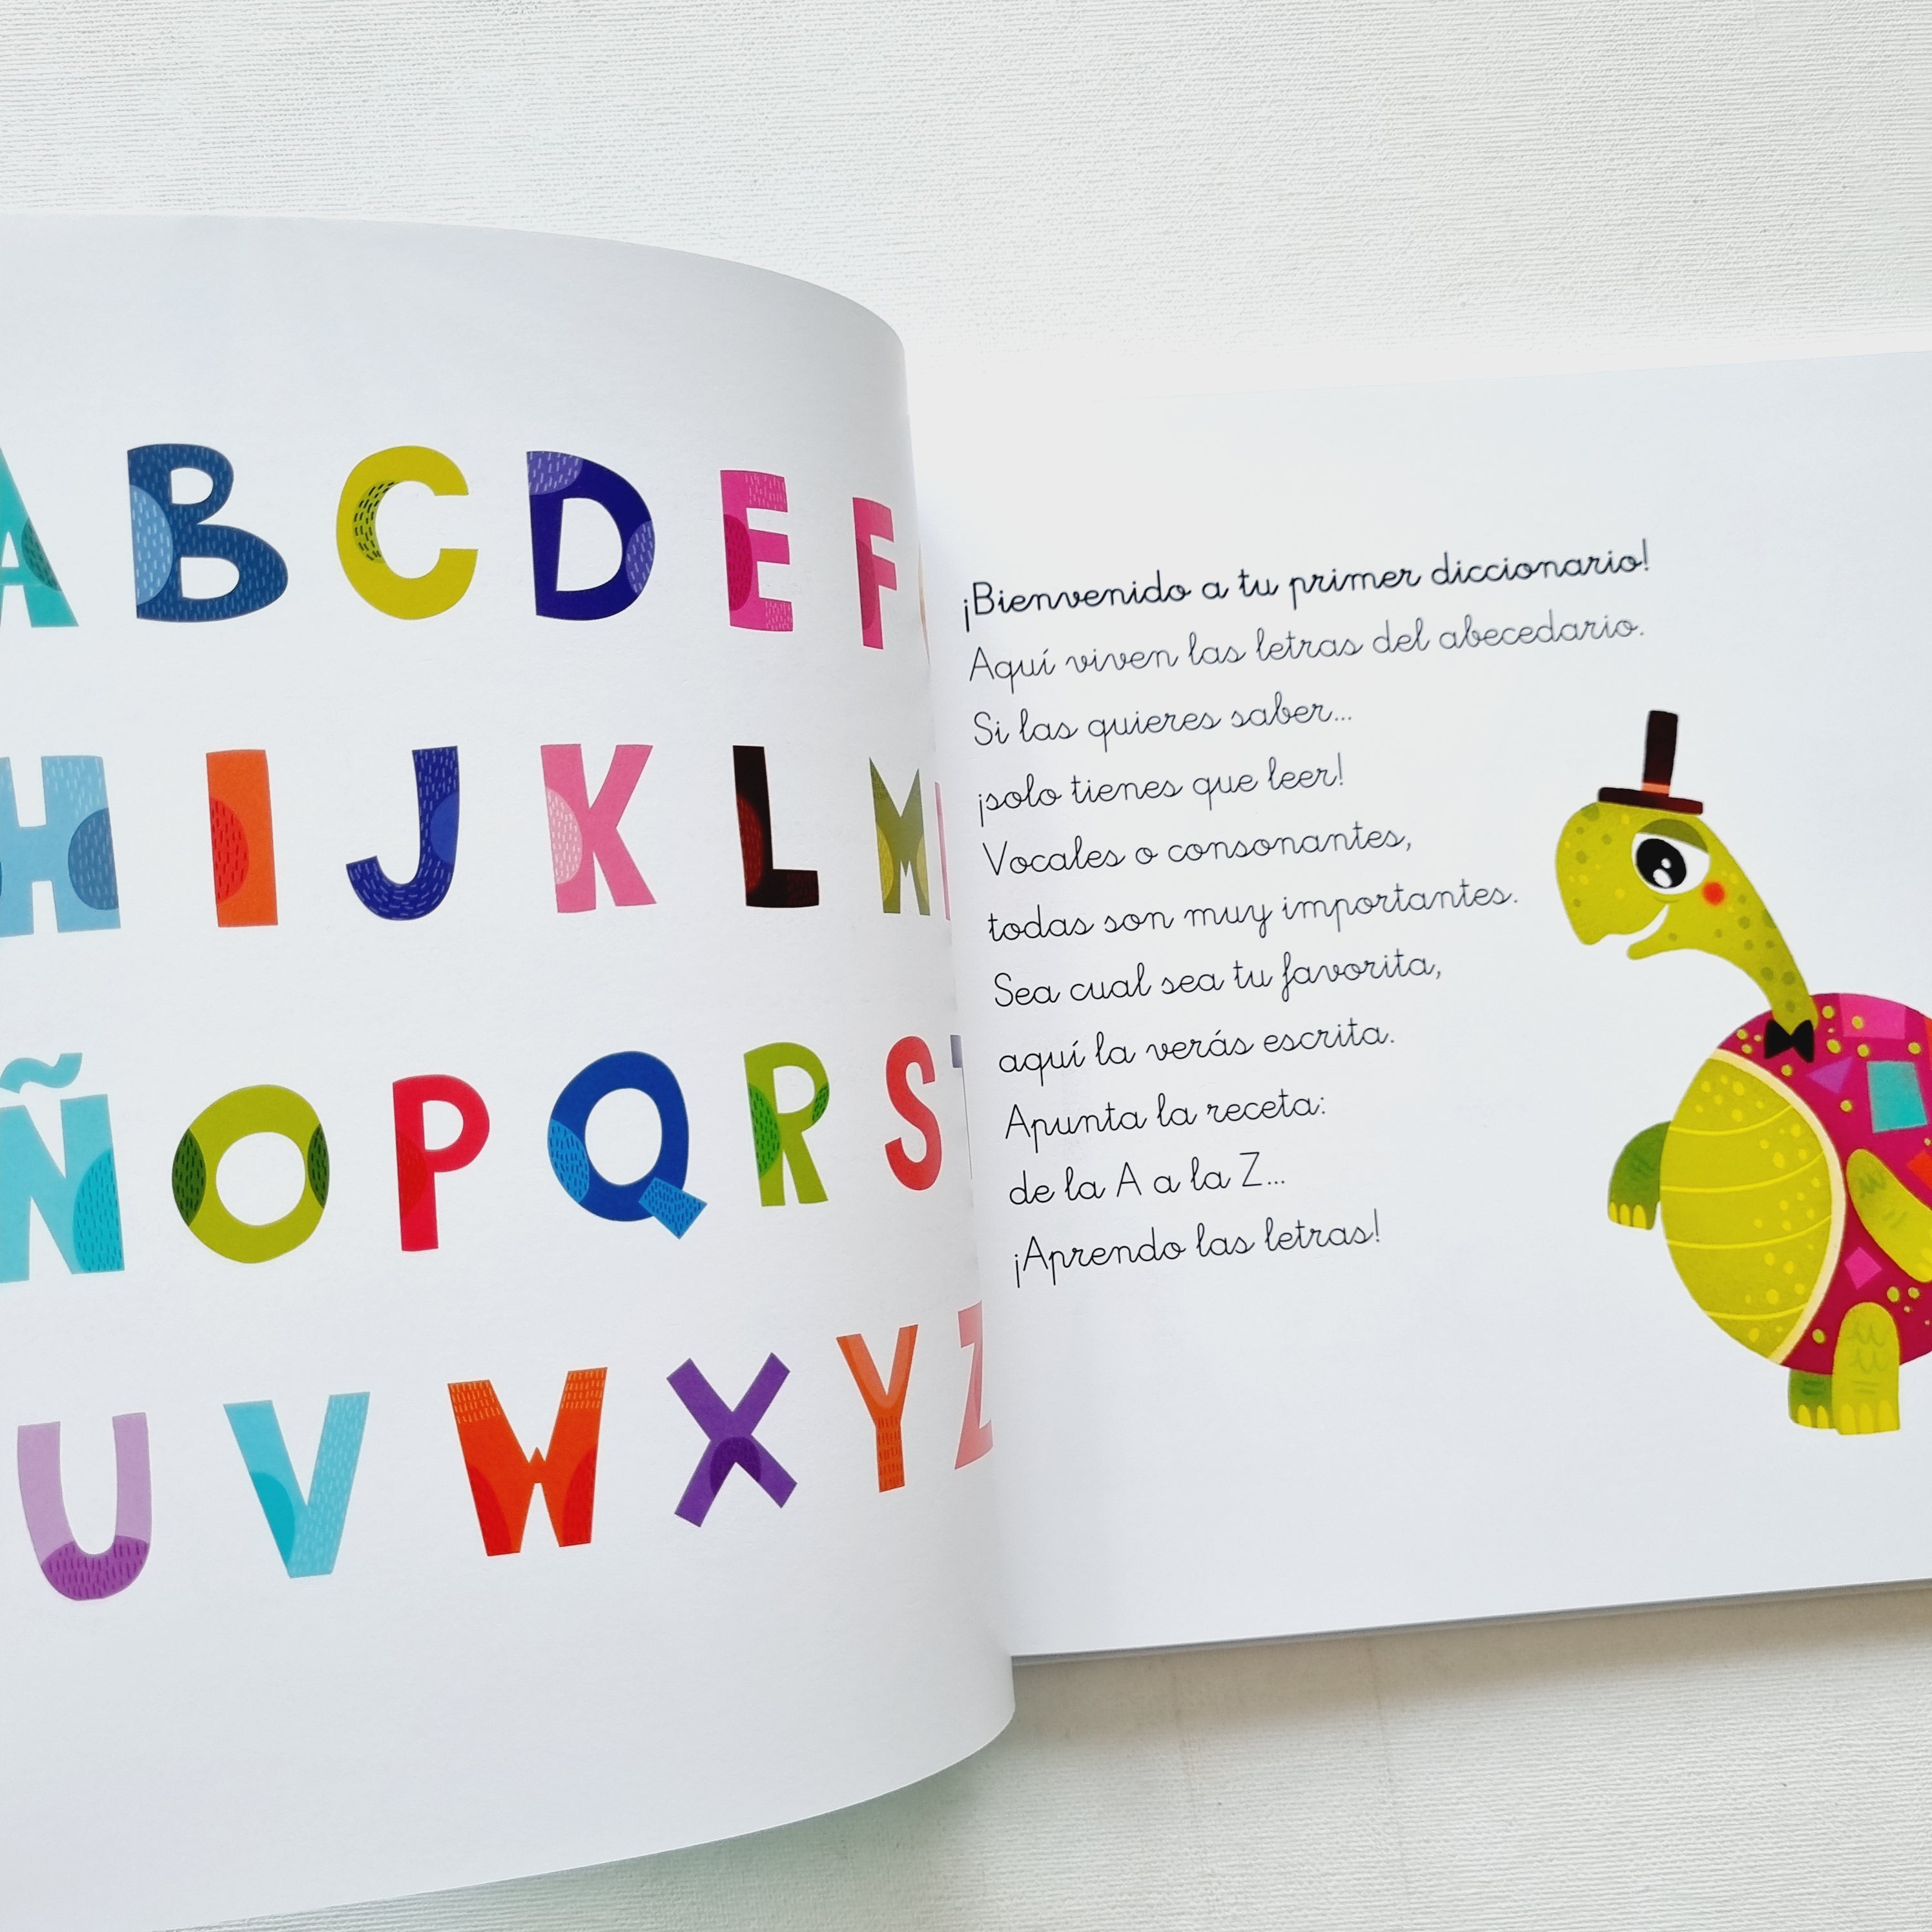 A B C D E F
H I J K L M
Ñ O P Q R S T
U V W X Y Z
¡Bienvenido a tu primer diccionario!
Aquí viven las letras del abecedario.
Si las quieres saber...
¡solo tienes que leer!
Vocales o consonantes,
todas son muy importantes.
Sea cual sea tu favorita,
aquí la verás escrita.
Apunta la receta:
de la A a la Z...
¡Aprendo las letras!